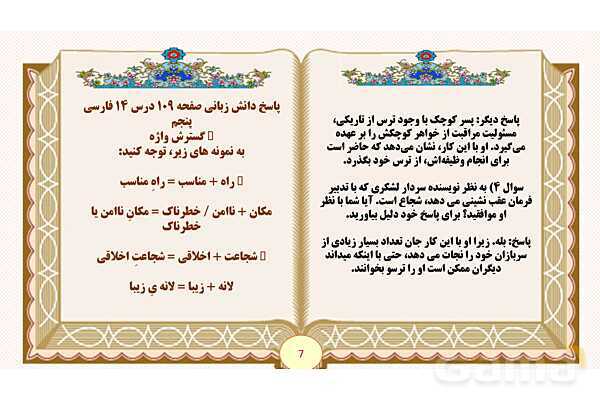 پاسخ دیگر: پسر کوچک با وجود ترس از تاریکی،
مسئولیت مراقبت از خواهر کوچکش را بر عهده
می‌گیرد. او با این کار، نشان می‌دهد که حاضر است
برای انجام وظیفه‌اش، از ترس خود بگذرد.
سوال ۴) به نظر نویسنده سردار لشگری که با تدبیر
فرمان عقب نشینی می دهد، شجاع است. آیا شما با نظر
او موافقید؟ برای پاسخ خود دلیل بیاورید.
پاسخ: بله. زیرا او با این کار جان تعداد بسیار زیادی از
سربازان خود را نجات می دهد، حتی با اینکه میداند
دیگران ممکن است او را ترسو بخوانند.
پاسخ دانش زبانی صفحه ۱۰۹ درس ۱۴ فارسی
پنجم
گسترش واژه
به نمونه های زیر، توجه کنید:
راه + مناسب = راهِ مناسب
مکان + ناامن / خطرناک = مکانِ ناامن یا
خطرناک
شجاعت + اخلاقی = شجاعتِ اخلاقی
لانه + زیبا = لانه یِ زیبا
7
Gama